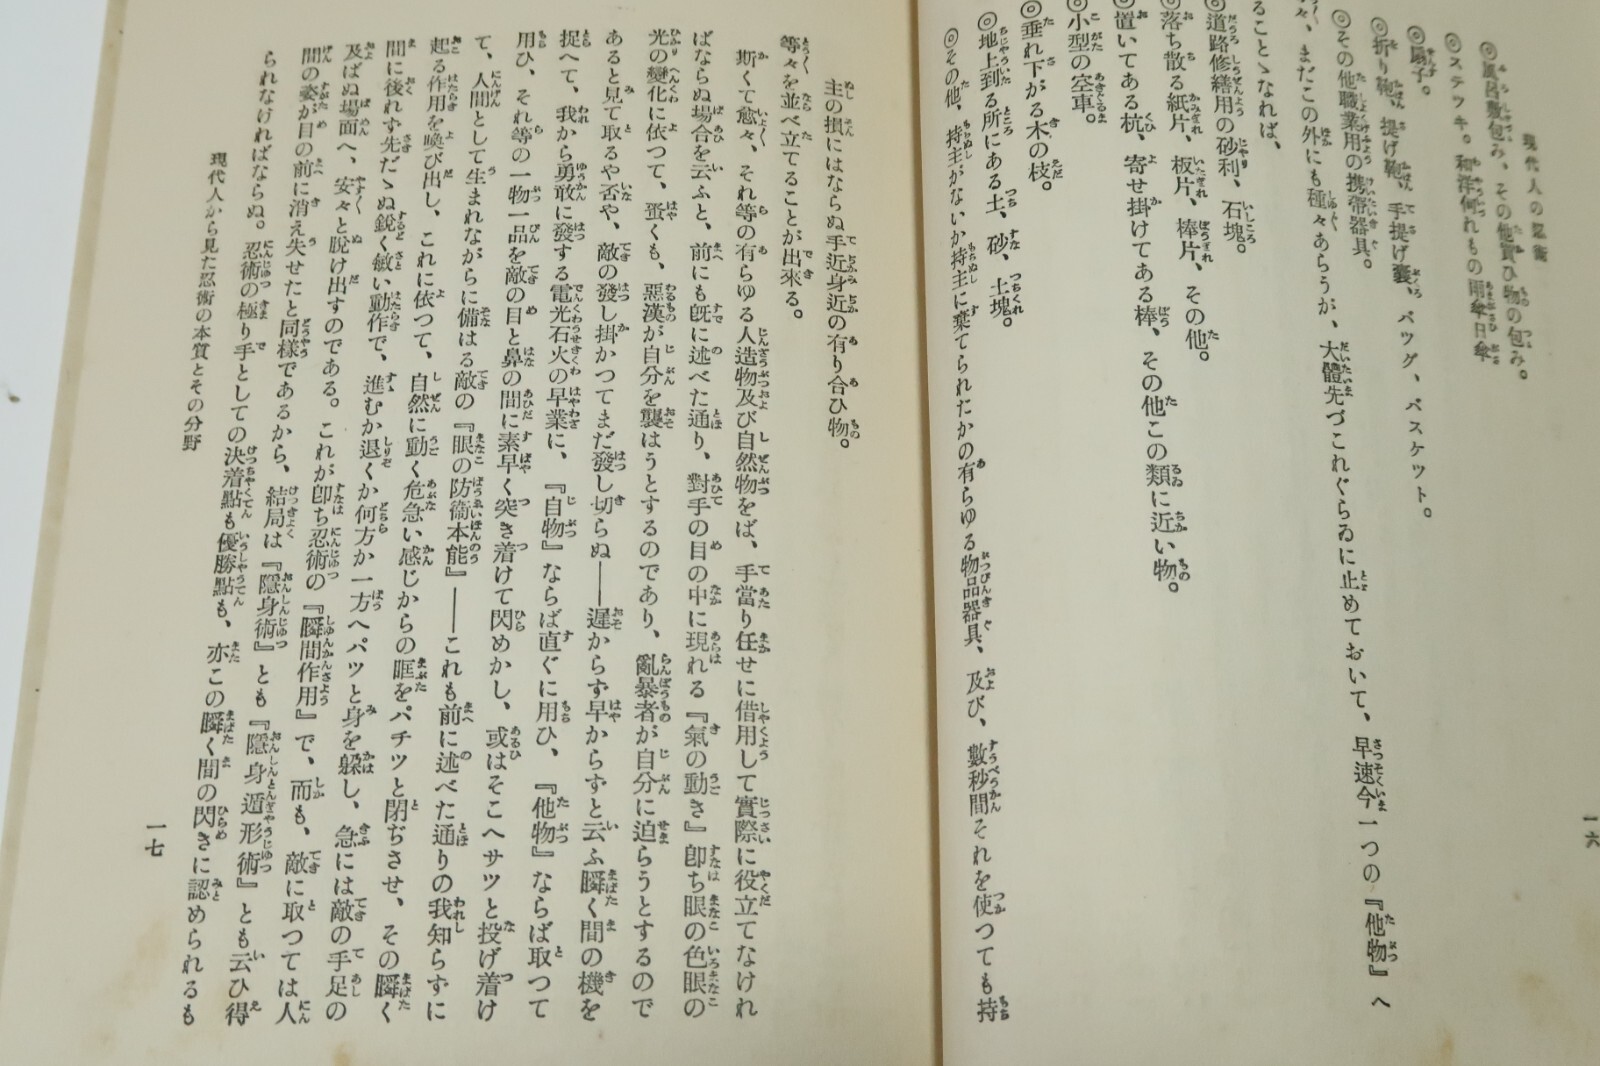 現代人の忍術
◎風呂敷包み、その他買ひ物の包み。
◎ステッキ。和洋何れもの雨傘日傘
◎扇子。
◎折り鞄、提げ鞄、手提げ囊、バッグ、バスケット。
◎その他職業用の携帶器具。
々、まだこの外にも種々あらうが、大體先づこれぐらゐに止めておいて、早速今一つの『他物』へ
ることゝなれば、
◎道路修繕用の砂利、石塊。
◎落ち散る紙片、板片、棒片、その他。
◎置いてある杭、寄せ掛けてある棒、その他この類に近い物。
◎小型の空車。
◎垂れ下がる木の枝。
◎地上到る所にある土、砂、土塊。
◎その他、持主がないか持主に棄てられたかの有らゆる物品器具、及び、數秒間それを使つても持
一六
主の損にはならぬ手近身近の有り合ひ物。
等々を並べ立てることが出來る。
斯くて愈々、それ等の有らゆる人造物及び自然物をば、手當り任せに借用して實際に役立てなけれ
ばならぬ場合を云ふと、前にも既に述べた通り、對手の目の中に現れる『氣の動き』卽ち眼の色眼の
光の變化に依つて、蚤くも、惡漢が自分を襲はうとするのであり、亂暴者が自分に迫らうとするので
あると見て取るや否や、敵の發し掛かつてまだ發し切らぬ――遲からず早からずと云ふ瞬く間の機を
捉へて、我から勇敢に發する電光石火の早業に、『自物』ならば直ぐに用ひ、『他物』ならば取つて
用ひ、それ等の一物一品を敵の目と鼻の間に素早く突き着けて閃めかし、或はそこへサッと投げ着け
て、人間として生まれながらに備はる敵の『眼の防衞本能』――これも前に述べた通りの我知らずに
起る作用を喚び出し、これに依つて、自然に動く危急い感じからの眶をパチッと閉ぢさせ、その瞬く
間に後れず先だゝぬ銳く敏い動作で、進むか退くか何方か一方へパッと身を躱し、急には敵の手足の
及ばぬ場面へ、安々と脫け出すのである。これが卽ち忍術の『瞬間作用』で、而も、敵に取つては人
間の姿が目の前に消え失せたと同樣であるから、結局は『隱身術』とも『隱身遁形術』とも云ひ得
られなければならぬ。忍術の極り手としての決着點も優勝點も、亦この瞬く間の閃きに認められるも
現代人から見た忍術の本質とその分野
一七